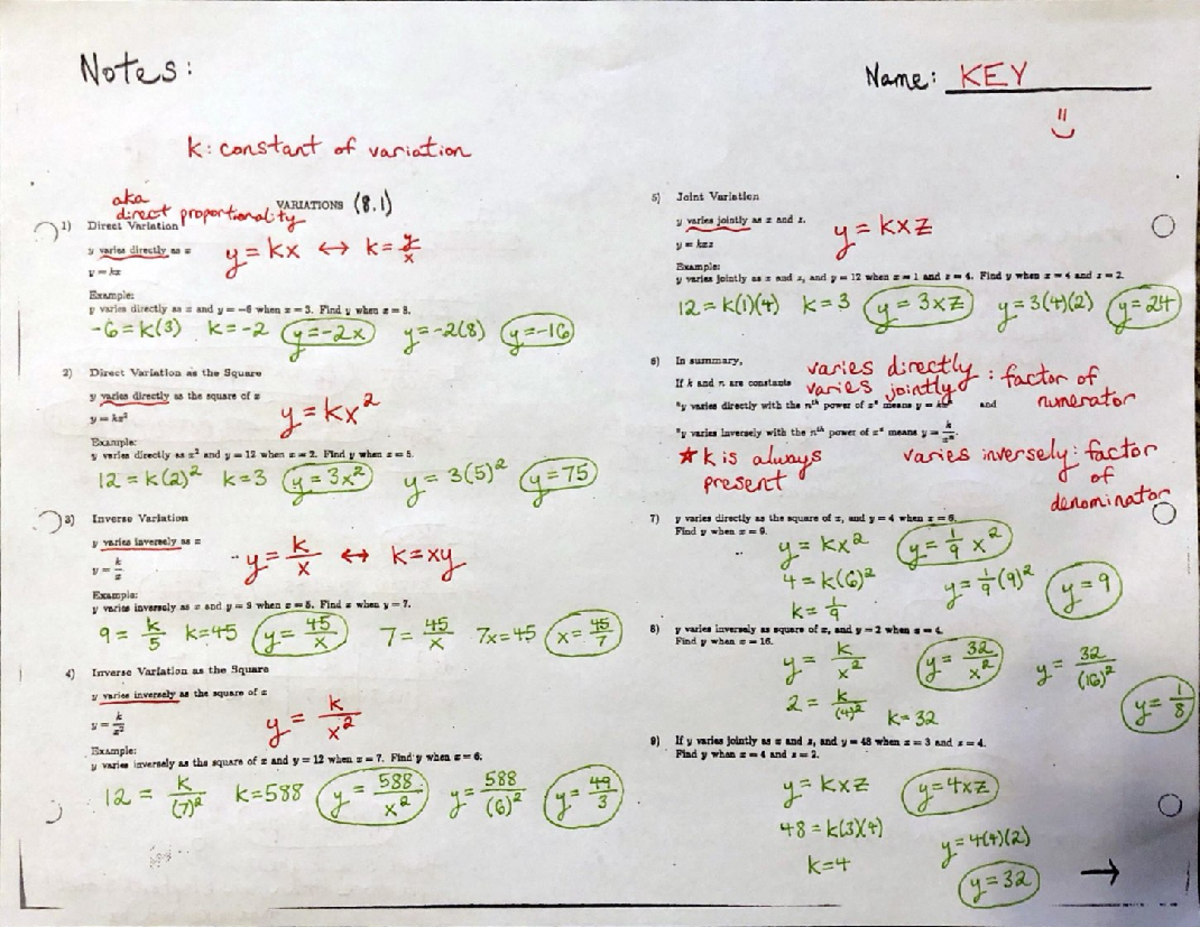 Notes:
Name: KEY
k: constant of variation
aka
direct proportionality
VARIATIONS (8.1)
1) Direct Variation
y varies directly as x
y = kx ↔ k = y/x
y = kx
Example:
y varies directly as x and y = -6 when x = 3. Find y when x = 8.
-6 = k(3) k = -2 y = -2x y = -2(8) y = -16
2) Direct Variation as the Square
y varies directly as the square of x
y = kx²
y = kx²
Example:
y varies directly as x² and y = 12 when x = 2. Find y when x = 5.
12 = k(2)² k = 3 y = 3x² y = 3(5)² y = 75
3) Inverse Variation
y varies inversely as x
y = k/x ↔ k = xy
y = k/x
Example:
y varies inversely as x and y = 9 when x = 5. Find x when y = 7.
9 = k/5 k = 45 y = 45/x 7 = 45/x 7x = 45 x = 45/7
4) Inverse Variation as the Square
y varies inversely as the square of x
y = k/x²
y = k/x²
Example:
y varies inversely as the square of x and y = 12 when x = 7. Find y when x = 6.
12 = k/(7)² k = 588 y = 588/x² y = 588/(6)² y = 49/3
5) Joint Variation
y varies jointly as x and z.
y = kxz
y = kxz
Example:
y varies jointly as x and z, and y = 12 when x = 1 and z = 4. Find y when x = 4 and z = 2.
12 = k(1)(4) k = 3 y = 3xz y = 3(4)(2) y = 24
6) In summary,
varies directly
varies jointly : factor of numerator
If k and n are constants
"y varies directly with the nth power of x" means y = kxⁿ and
"y varies inversely with the nth power of x" means y = k/xⁿ.
★ k is always present
varies inversely: factor of denominator
7) y varies directly as the square of x, and y = 4 when x = 6.
Find y when x = 9.
y = kx² y = 1/9 x²
4 = k(6)² y = 1/9 (9)² y = 9
k = 1/9
8) y varies inversely as square of x, and y = 2 when x = 4.
Find y when x = 16.
y = k/x² y = 32/x² y = 32/(16)²
2 = k/(4)² k = 32 y = 1/8
9) If y varies jointly as x and z, and y = 48 when x = 3 and z = 4.
Find y when x = 4 and z = 2.
y = kxz y = 4xz
48 = k(3)(4) y = 4(4)(2)
k = 4 y = 32 →